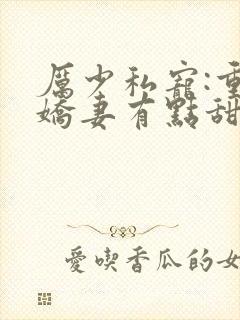 厲少私寵:重
嬌妻有點甜
愛喫香瓜的女